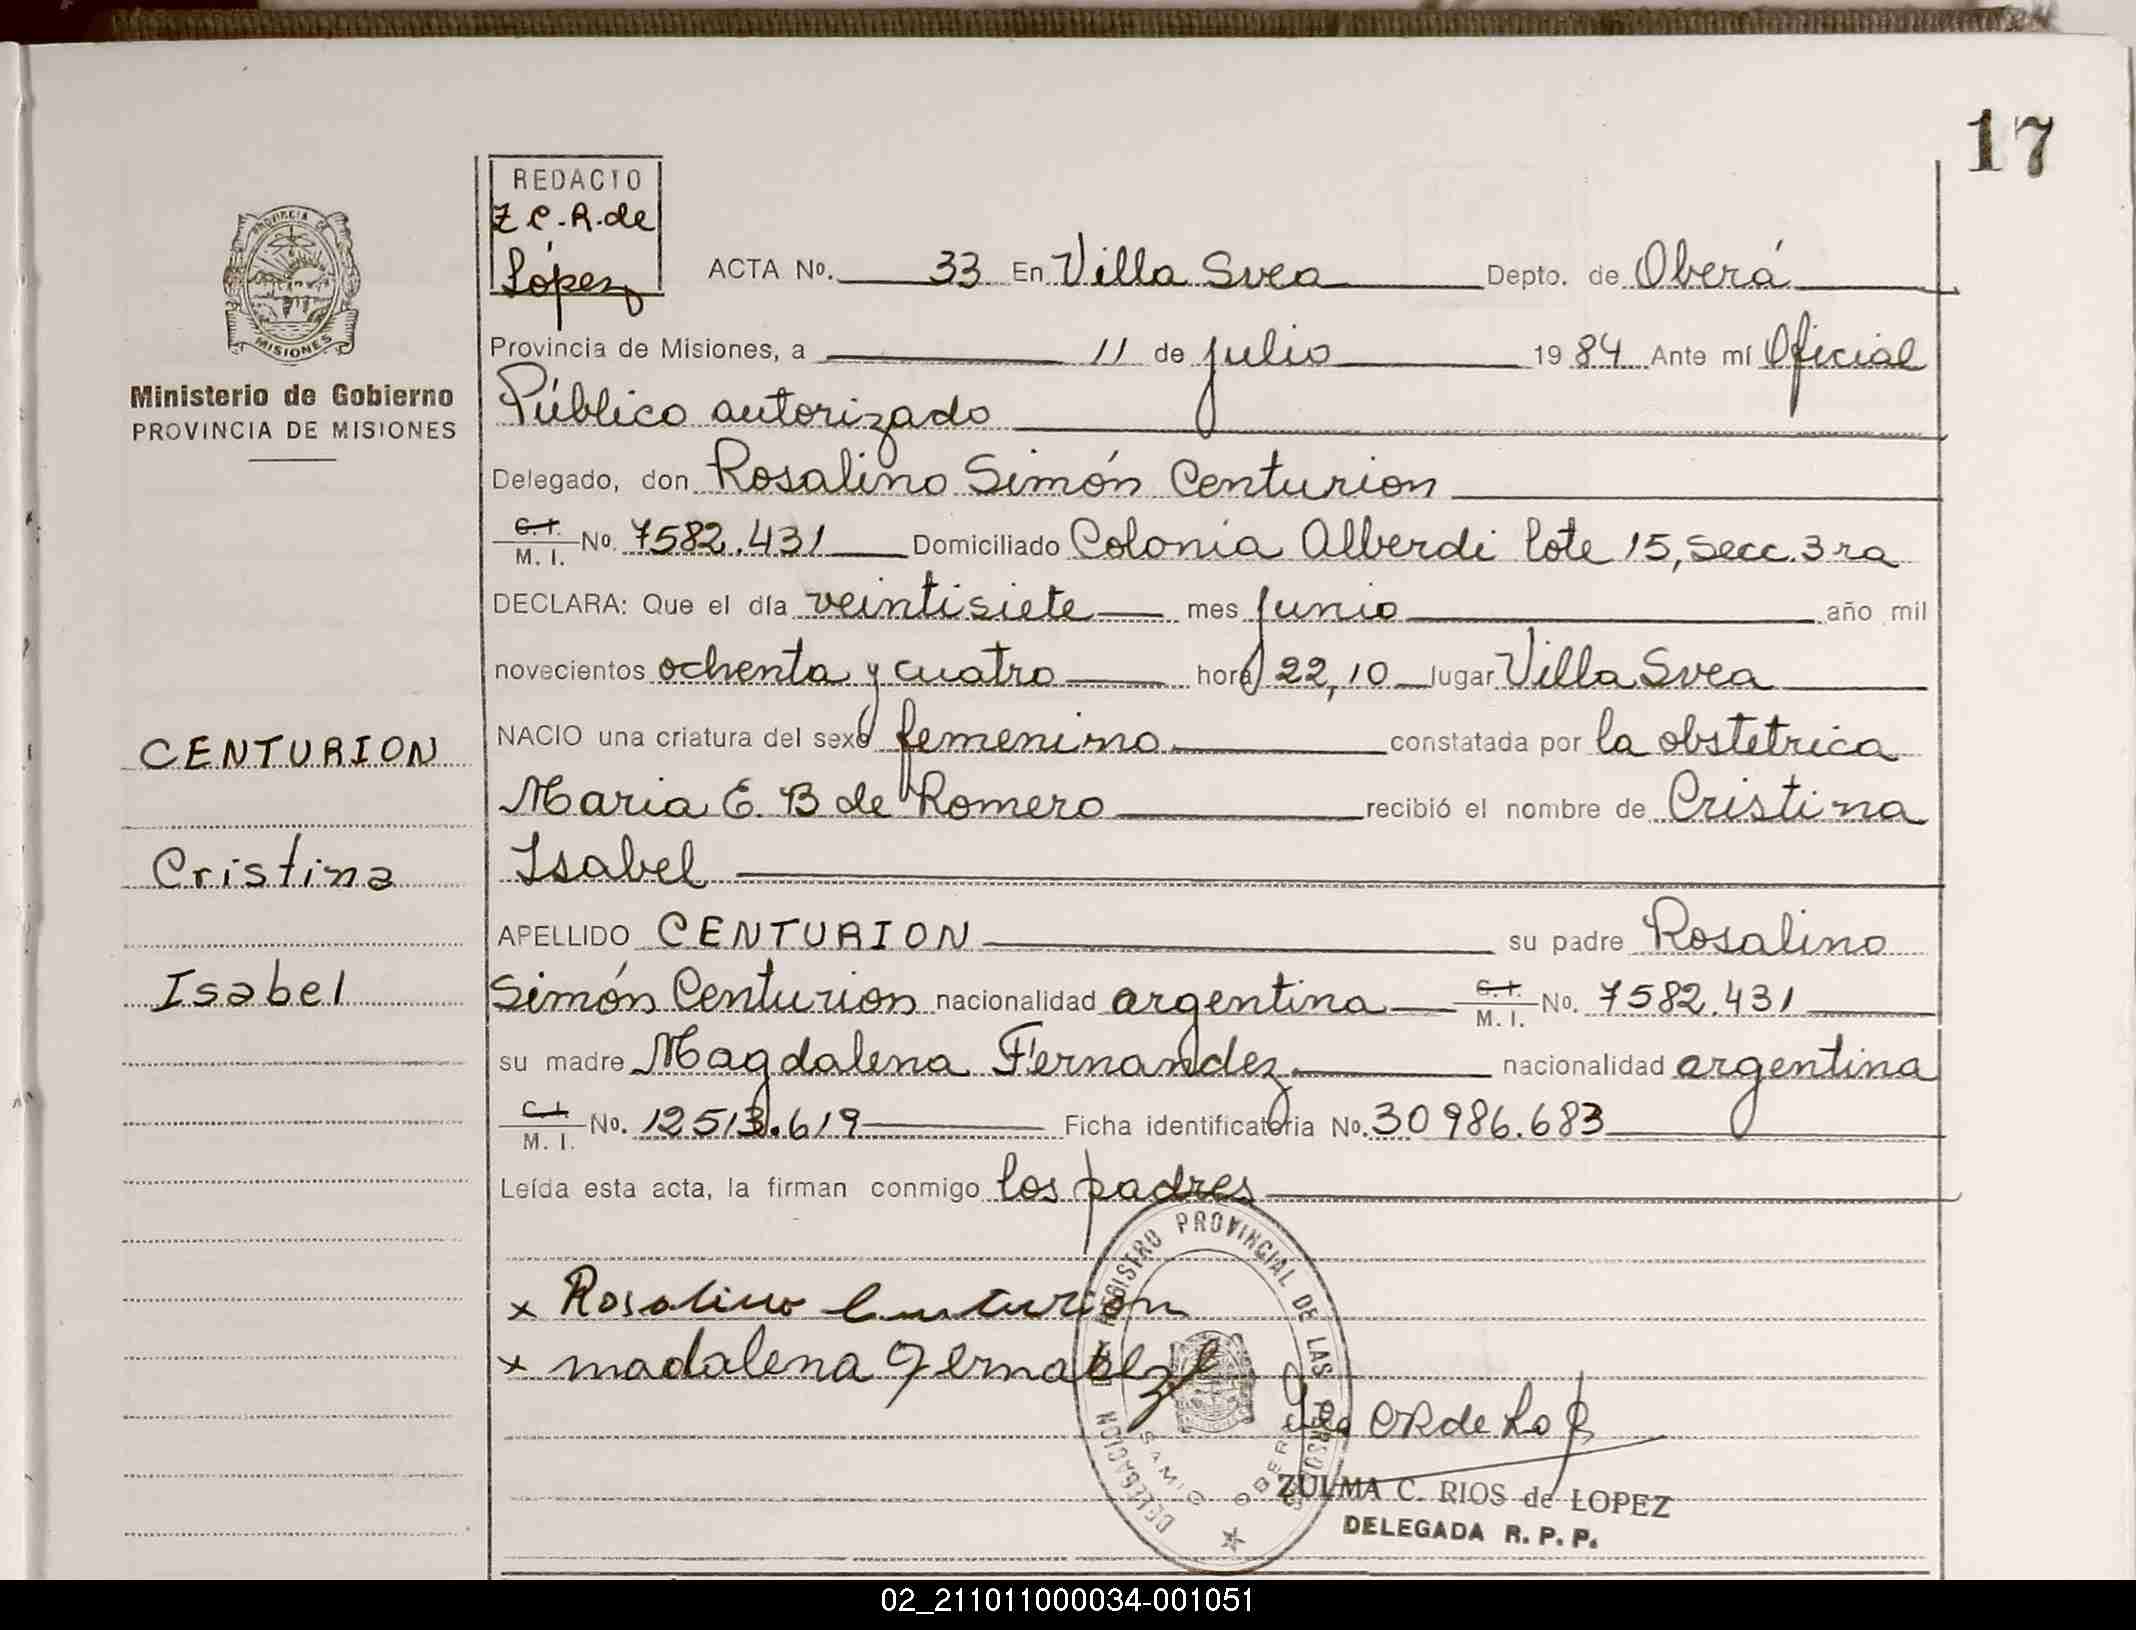 17
REDACTO
Z C. R. de
López
ACTA No. 33 En Villa Svea Depto. de Oberá
Provincia de Misiones, a 11 de julio 1984 Ante mí Oficial
Ministerio de Gobierno
PROVINCIA DE MISIONES
Público autorizado
Delegado, don Rosalino Simón Centurion
C. I.
M. I. No. 7582.431 Domiciliado Colonia Alberdi lote 15, Secc. 3ra
DECLARA: Que el día veintisiete mes junio año mil
novecientos ochenta y cuatro hora 22,10 lugar Villa Svea
CENTURION
NACIO una criatura del sexo femenino constatada por la obstetrica
Maria E. B de Romero recibió el nombre de Cristina
Cristina
Isabel
APELLIDO CENTURION su padre Rosalino
Isabel
Simón Centurion nacionalidad argentina C. I. M. I. No. 7582.431
su madre Magdalena Fernandez nacionalidad argentina
C. I.
M. I. No. 12513.619 Ficha identificatoria No. 30986.683
Leída esta acta, la firman conmigo los padres
x Rosalino Centurion
x madalena Fernabez
DELEGACION REGISTRO PROVINCIAL DE LAS PERSONAS
ZULMA C. RIOS de LOPEZ
DELEGADA R. P. P.
02_211011000034-001051